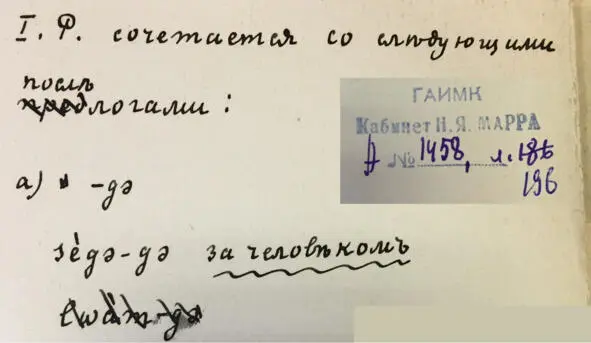 I. Р. сочетается со слѣдующими
послѣ
предлогами:
ГАИМК
Кабинет Н.Я. МАРРА
А № 1458, л. 186
196
а) -gә
за человѣкомъ